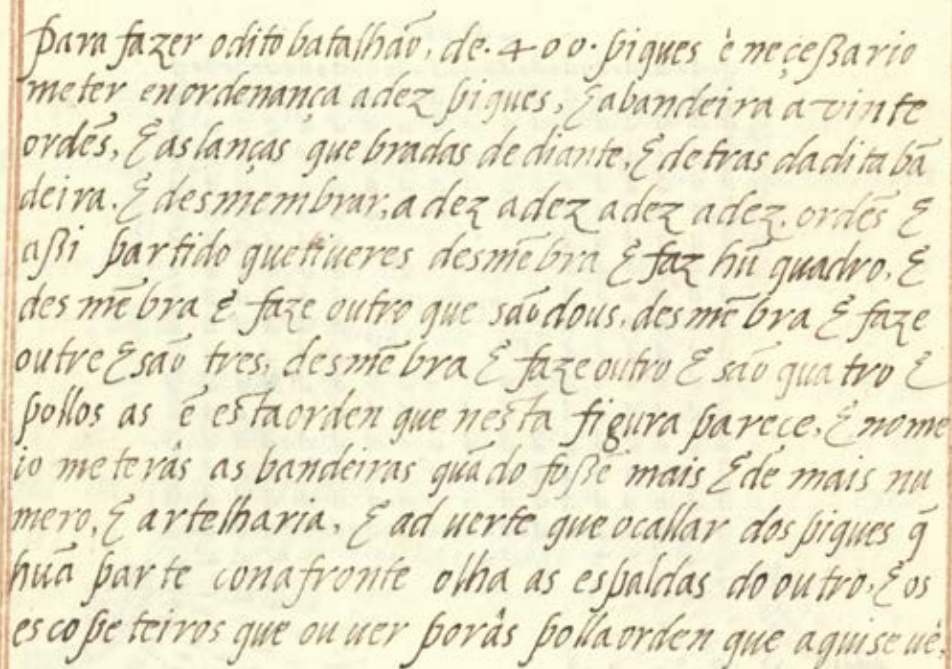 Para fazer odito batalhaõ, de · 400 · piques è neçeßario
meter en ordenança a dez piques, & abandeira a vinte
ordẽs, & as lanças quebradas de diante, & de tras dadita bã
deira. & desmembrar, a dez a dez a dez a dez. ordẽs &
aßi partido que tiueres desmẽbra & faz hũ quadro. &
desmẽbra & faze outro que saõ dous, desmẽbra & faze
outre & saõ tres, desmẽbra & faze outro & saõ quatro &
pollos as ẽ esta orden que nesta figura parece. & nome
io meterâs as bandeiras quãdo foßẽ mais & de mais nu
mero, & artelharia, & aduerte que ocallar dos piques q̃
huã parte cona fronte olha as espaldas do outro. & os
escopeteiros que ouuer porâs polla orden que aqui se uè.